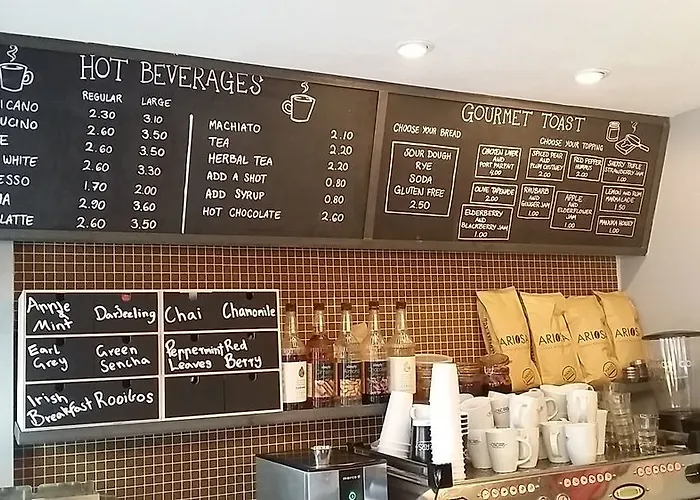 HOT BEVERAGES
REGULAR LARGE
2.30 3.10
2.60 3.50
2.60 3.50
WHITE 2.60 3.30
1.70 2.00
2.90 3.60
LATTE 2.60 3.50
MACHIATO 2.10
TEA 2.20
HERBAL TEA 2.20
ADD A SHOT 0.80
ADD SYRUP 0.80
HOT CHOCOLATE 2.60
GOURMET TOAST
CHOOSE YOUR BREAD
SOUR DOUGH
RYE
SODA
GLUTEN FREE
2.50
CHOOSE YOUR TOPPING
CHICKEN LIVER
AND
PORT PARFAIT
4.00
SPICED PEAR
AND
PLUM CHUTNEY
2.00
RED PEPPER
HUMMUS
2.00
SHERRY TRIFLE
STRAWBERRY JAM
1.00
OLIVE TAPENADE
2.00
RHUBARB
AND
GINGER JAM
1.00
APPLE
AND
ELDERFLOWER
JAM
1.00
LEMON AND RUM
MARMALADE
1.50
ELDERBERRY AND
BLACKBERRY JAM
1.00
MANUKA HONEY
1.00
Annye
Mint
Darjeeling
Chai
Chamomile
Earl
Grey
Green
Sencha
Peppermint
Leaves
Red
Berry
Irish
Breakfast
Rooibos
ARIOSA
ARIOS
ARIOS
ARIOSA